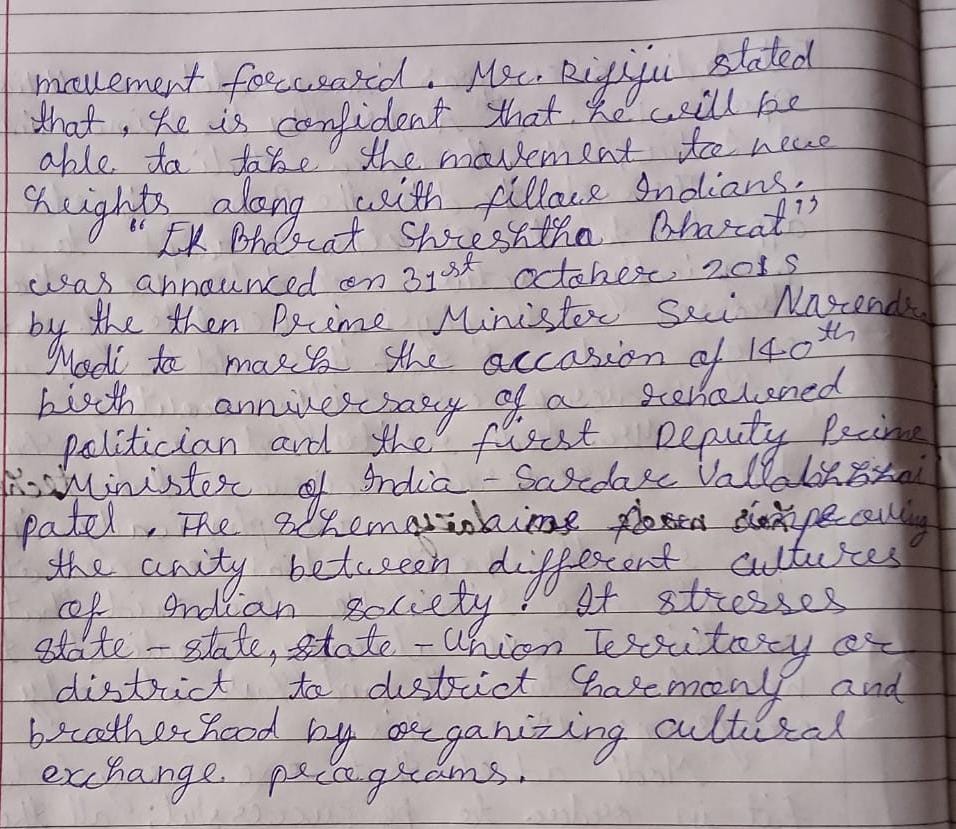 movement forward. Mr. Rijiju stated
that, he is confident that he will be
able to take the movement to new
heights along with fillow Indians.
"EK Bharat Shreshtha Bharat"
was announced on 31st october, 2015
by the then Prime Minister Sri Narendra
Modi to mark the occasion of 140th
birth anniversary of a renowned
politician and the first Deputy Prime
Minister of India - Sardar Vallabhbhai
patel. The scheme
the unity between different cultures
of Indian society. It stresses
state - state, state - Union Territory or
district to district harmony and
brotherhood by organizing cultural
exchange programs.